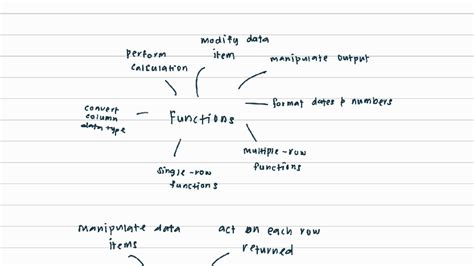 modify data
item
perform
calculation
manipulate output
format dates & numbers
Functions
convert
column
data type
multiple-row
functions
single-row
functions
manipulate data
items
act on each row
returned